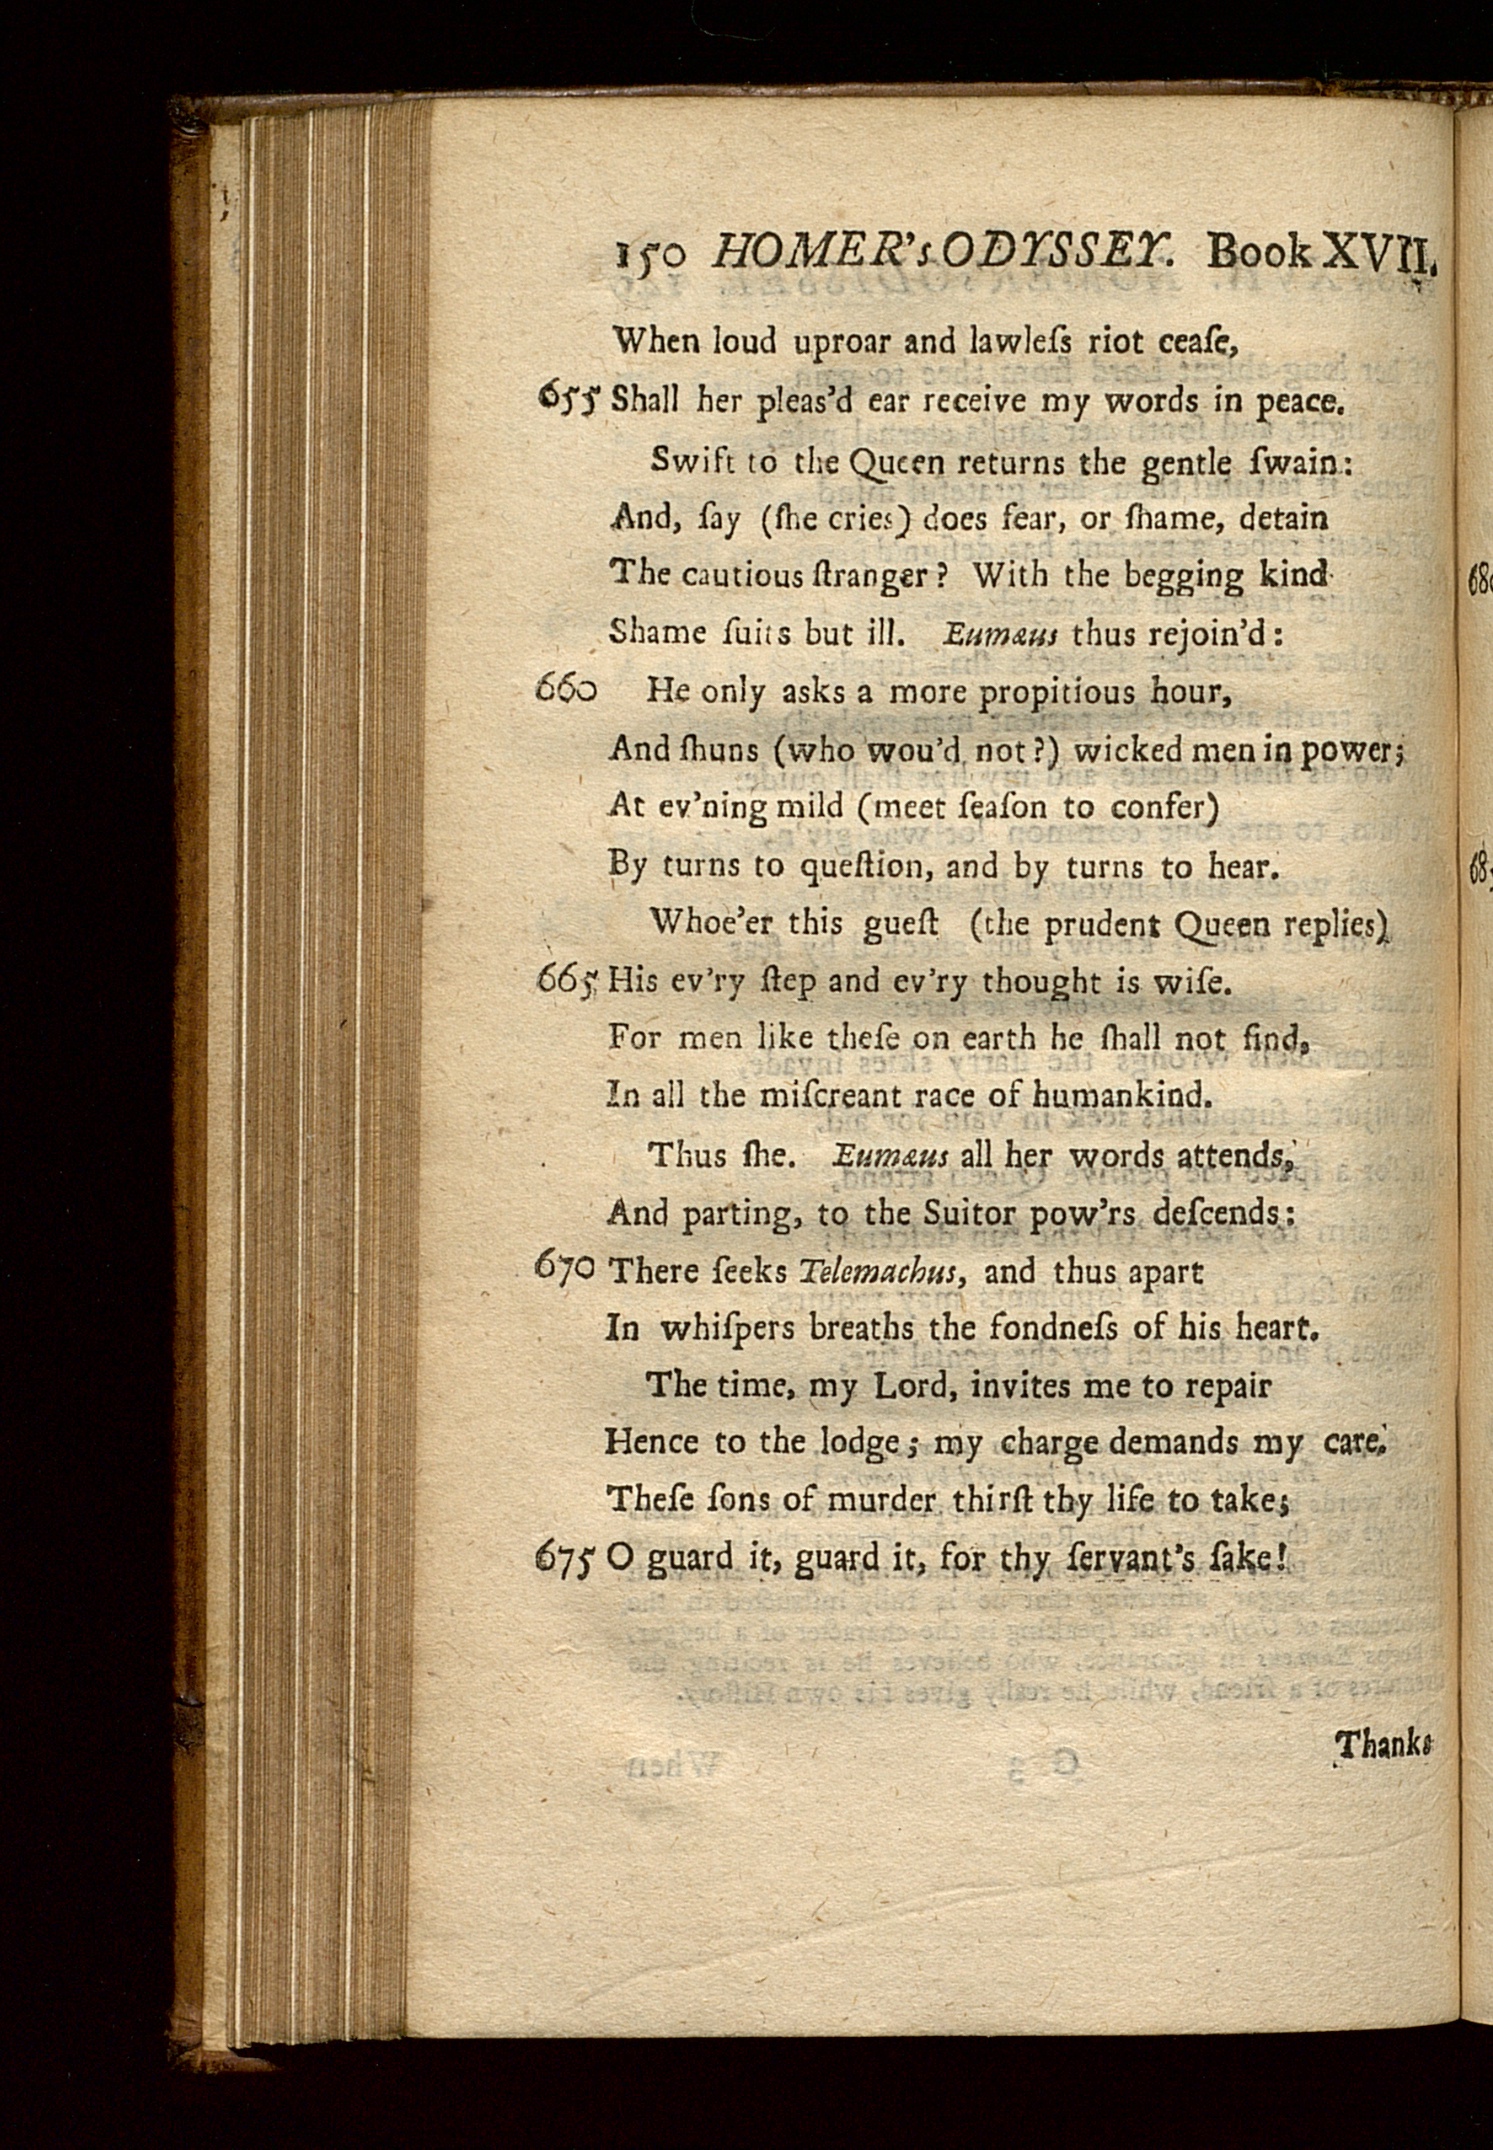 150 HOMER's ODYSSEY. Book XVII.
When loud uproar and lawleſs riot ceaſe,
655 Shall her pleas'd ear receive my words in peace.
Swift to the Queen returns the gentle ſwain:
And, ſay (ſhe cries) does fear, or ſhame, detain
The cautious ſtranger? With the begging kind
Shame ſuits but ill. Eumæus thus rejoin'd:
660 He only asks a more propitious hour,
And ſhuns (who wou'd not?) wicked men in power;
At ev'ning mild (meet ſeaſon to confer)
By turns to queſtion, and by turns to hear.
Whoe'er this gueſt (the prudent Queen replies)
665 His ev'ry ſtep and ev'ry thought is wiſe.
For men like theſe on earth he ſhall not find,
In all the miſcreant race of humankind.
Thus ſhe. Eumæus all her words attends,
And parting, to the Suitor pow'rs deſcends:
670 There ſeeks Telemachus, and thus apart
In whiſpers breaths the fondneſs of his heart.
The time, my Lord, invites me to repair
Hence to the lodge; my charge demands my care.
Theſe ſons of murder thirſt thy life to take;
675 O guard it, guard it, for thy ſervant's ſake!
Thanks